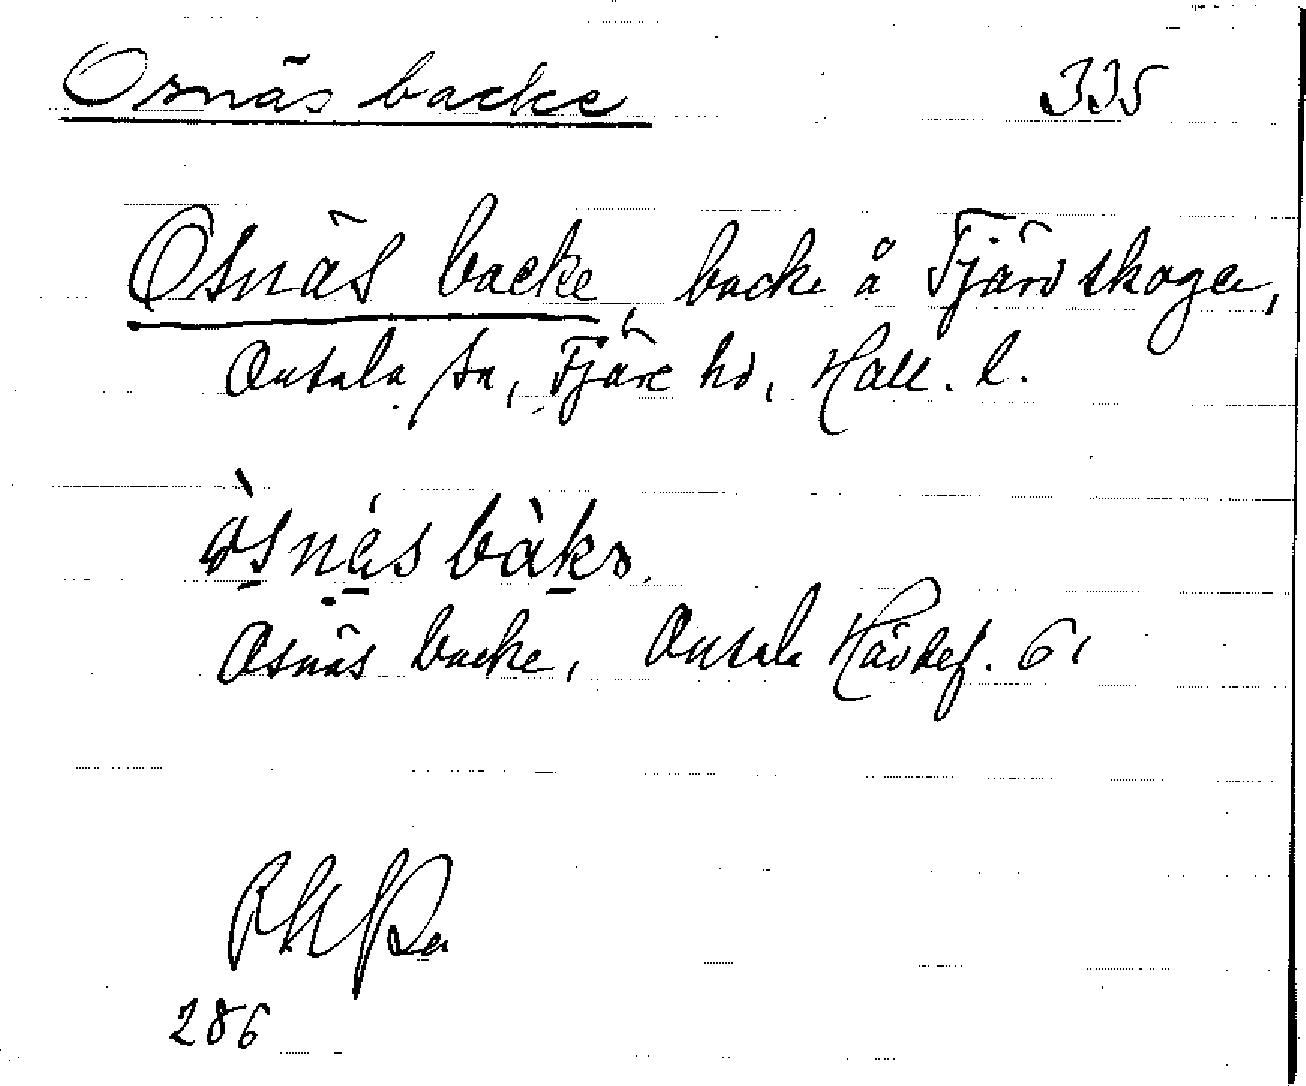 Osnäs backe 335
Osnäs backe, backe å Fjärdskogen,
Onsala sn, Fjäre hd, Hall. l.
Osnäs backe, Onsala Hävdef. 61
286